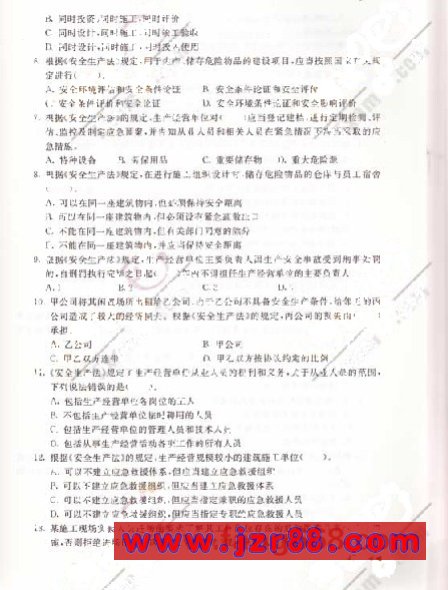 B. 同时投资,同时施工,同时评价
C. 同时设计,同时施工,同时竣工验收
D. 同时设计,同时施工,同时投入使用
6. 根据《安全生产法》规定,用于生产、储存危险物品的建设项目,应当按照国家有关规
定进行( )。
A. 安全环境评估和安全条件论证 B. 安全条件论证和安全评价
C. 安全条件评价和安全论证 D. 安全环境条件论证和安全影响评价
7. 根据《安全生产法》的规定,生产经营单位对( )应当登记建档,进行定期检测、评
估、监控及制定应急预案,并告知从业人员和相关人员在紧急情况下应当采取的应
急措施。
A. 特种设备 B. 劳保用品 C. 重要储存物 D. 重大危险源
8. 根据《安全生产法》规定,在进行施工组织设计时,储存危险物品的仓库与员工宿舍
( )。
A. 可以在同一座建筑物内,但必须保持安全距离
B. 可以在同一座建筑物内,但必须设有紧急疏散出口
C. 不能在同一座建筑物内,但有关部门同意的除外
D. 不能在同一座建筑物内,并应当保持安全距离
9. 根据《安全生产法》规定,生产经营单位主要负责人因生产安全事故受到刑事处罚
的,自刑罚执行完毕之日起( )年内不得担任生产经营单位的主要负责人
A. 1 B. 2 C. 3 D.
10. 甲公司将其闲置场所出租给乙公司,由于乙公司不具备安全生产条件,给邻近的丙
公司造成了较大的经济损失。根据《安全生产法》的规定,丙公司的损失由( )
承担。
A. 乙公司 B. 甲公司
C. 甲乙双方连带 D. 甲乙双方按协议约定的比例
11. 《安全生产法》规定了生产经营单位从业人员的权利和义务,关于从业人员的范围,
下列说法错误的是( )。
A. 包括生产经营单位各岗位的工人
B. 不包括生产经营单位临时聘用的人员
C. 包括生产经营单位的管理人员和技术人员
D. 包括从事生产经营活动各项工作的所有人员
12. 根据《安全生产法》的规定,生产经营规模较小的建筑施工单位( )。
A. 可以不建立应急救援体系,但应当建立应急救援组织
B. 可以不建立应急救援组织,但应当建立应急救援体系
C. 可以不建立应急救援组织,但应当指定兼职的应急救援人员
D. 可以不建立应急救援组织,但应当指定专职的应急救援人员
13. 某施工现场负责人
www.jzr88.com